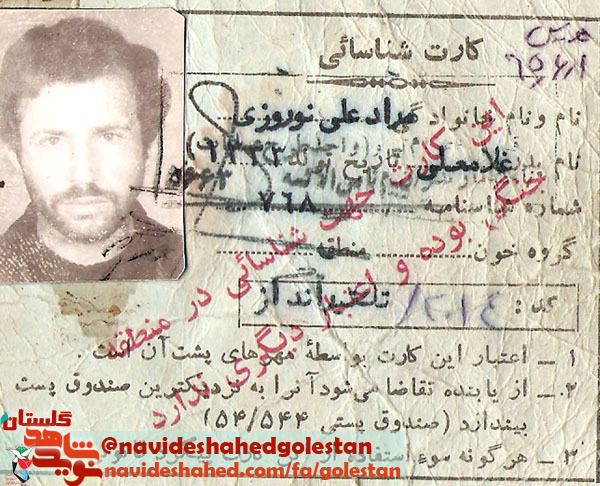 کارت شناسائی
نام و نام خانوادگی مراد علی نوروزی
نام پدر غلامعلی تاریخ تولد ۱۳۳۳
شماره شناسنامه ۷۶۸
گروه خون
کد: ۲۰۱۴/ تک تیرانداز
این کارت جهت شناسائی در منطقه
جنگی بوده و اعتبار دیگری ندارد
۱ ــ اعتبار این کارت بوسطهٔ مهرهای پشت آن است .
۲ ــ از یابنده تقاضا می‌شود آنرا به نزدیکترین صندوق پست
بیندازد (صندوق پستی ۵۴/۵۴۴)
۳ ــ هر گونه سوء استفاده از کارت پیگرد
گلستان
نوید شاهد
@navideshahedgolestan
navideshahed.com/fa/golestan